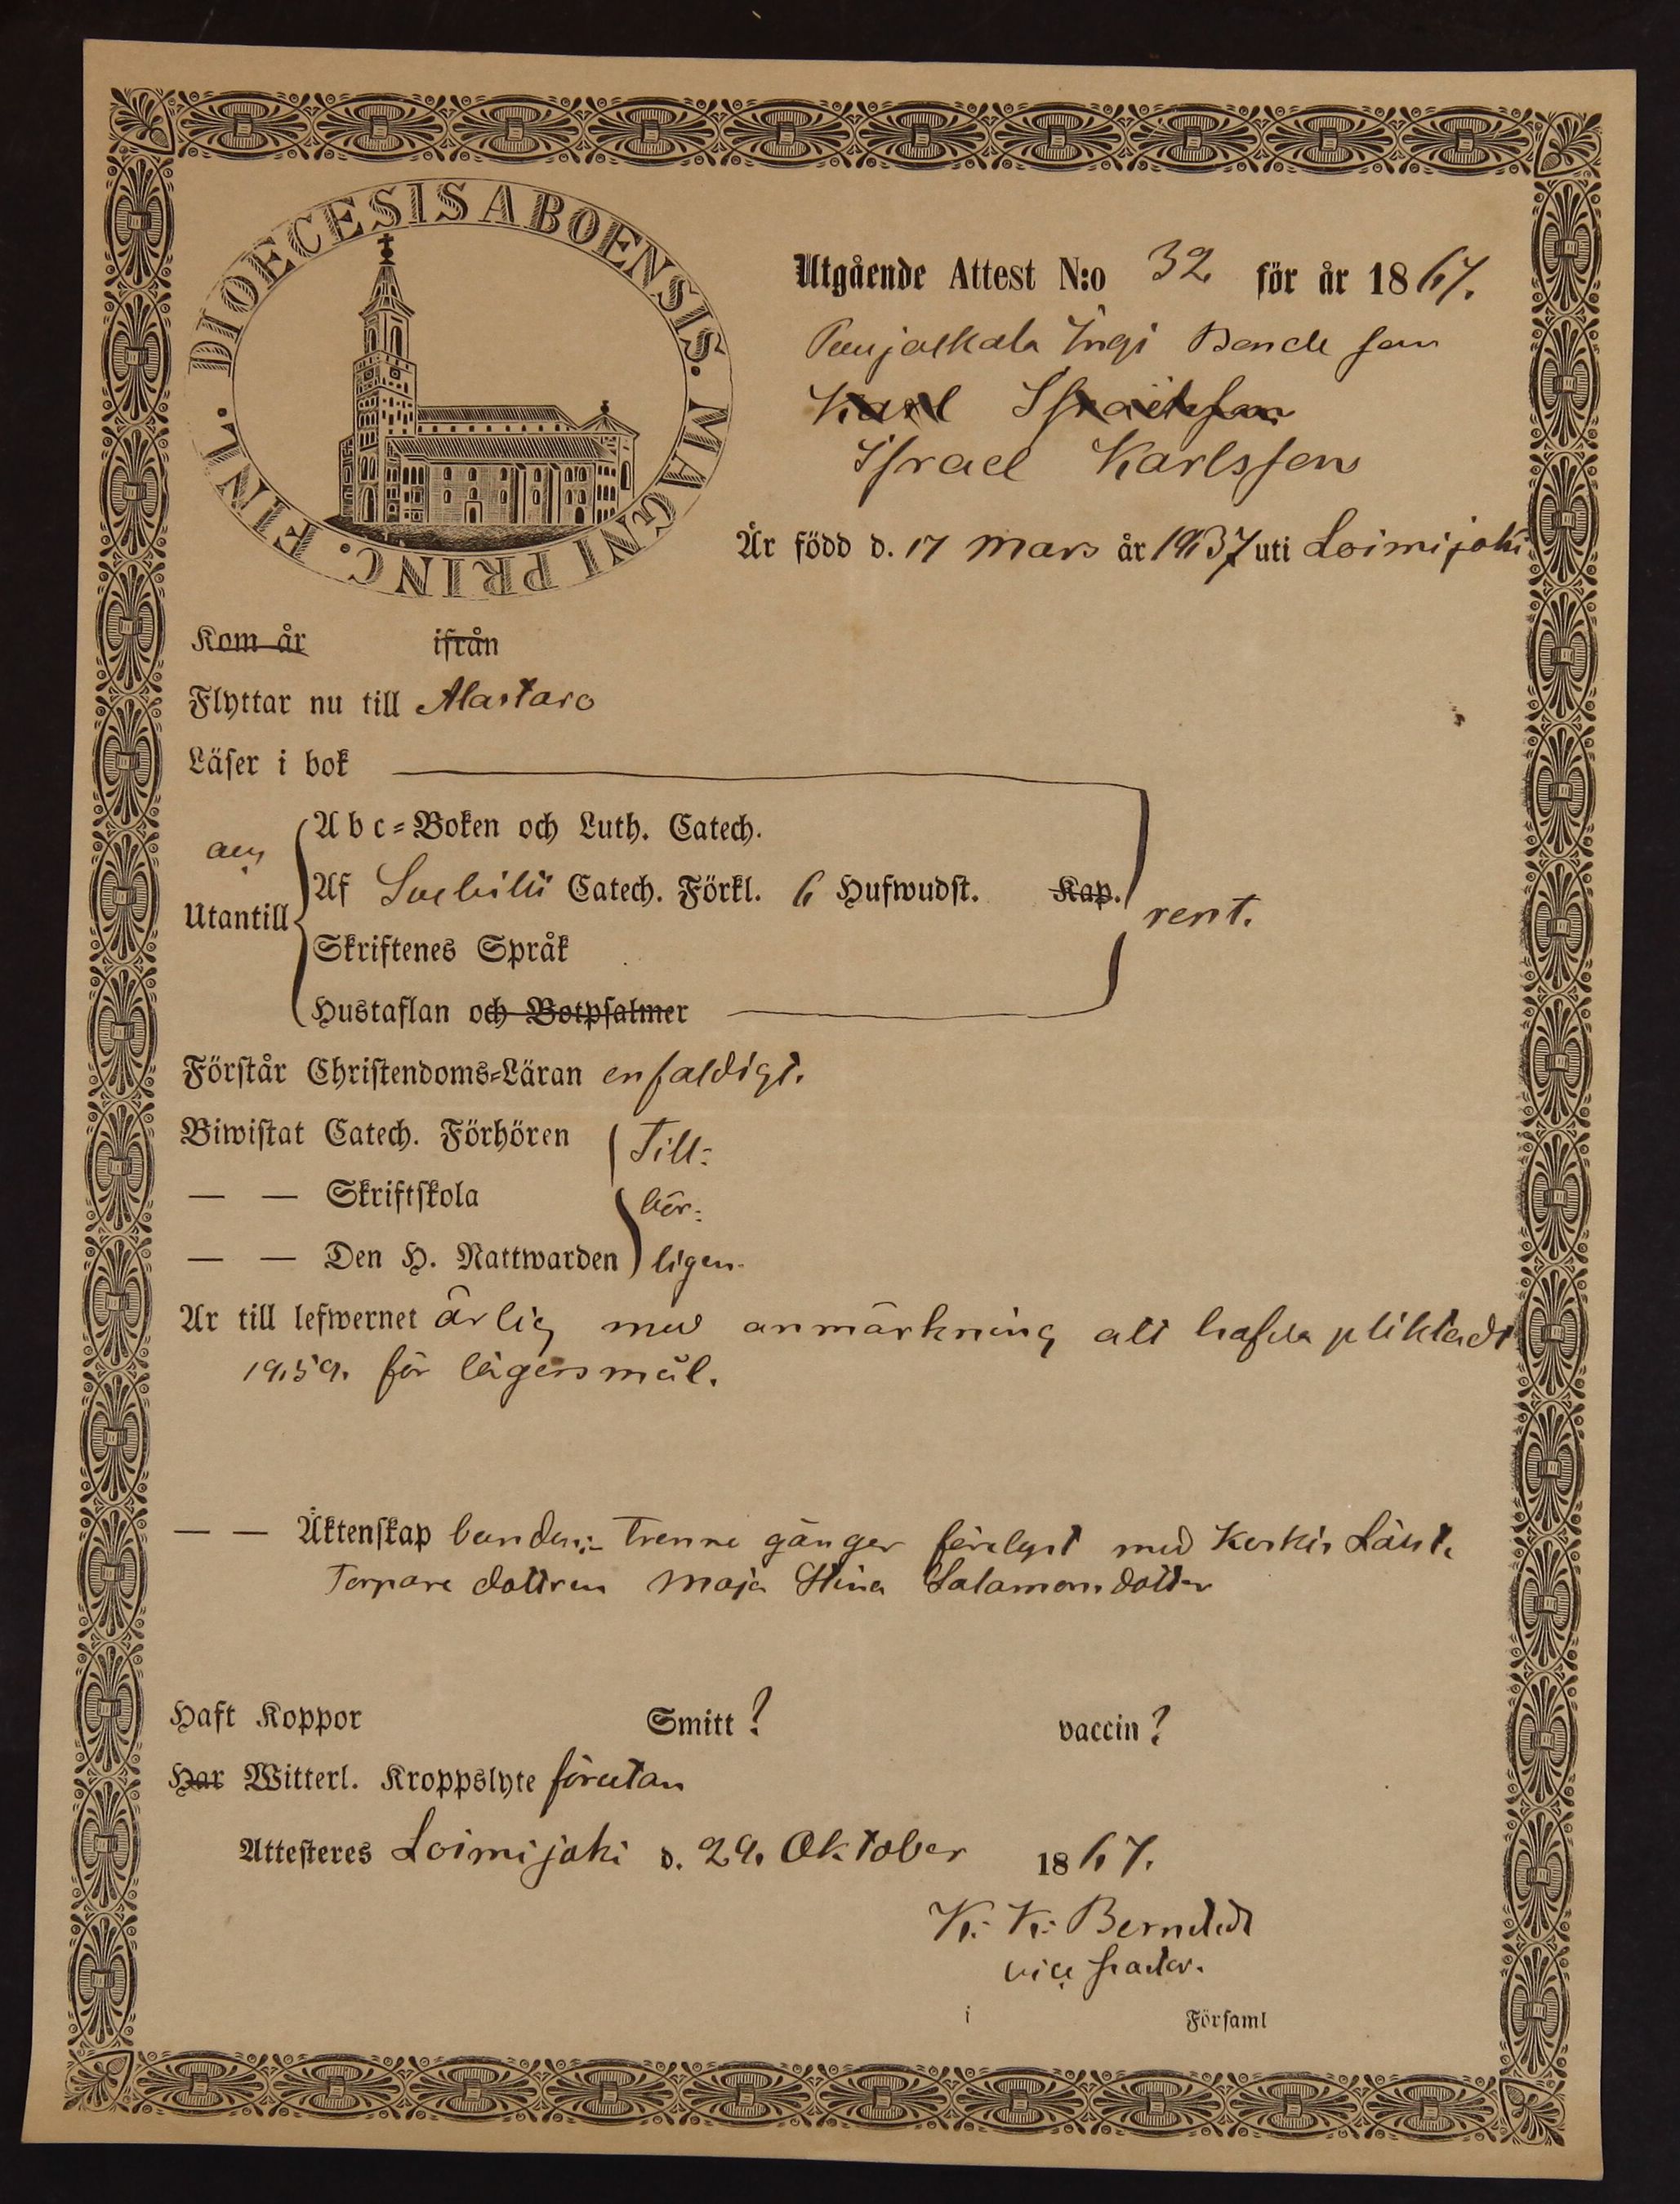 DIOECESIS ABOENSIS. MAGNI PRINC. FINL.
Utgående Attest N:o 32 för år 1867.
Ingi Bonde son
Karl Israelsson
Israel Karlsson
Är född d. 17 Mars år 1837 uti Loimijoki
Kom år ifrån
Flyttar nu till Alastaro
Läser i bok
Abc-Boken och Luth. Catech.
och
Af Svebilii Catech. Förkl. 6 Hufwudst. Kap.
rent.
Utantill
Skriftenes Språk
Hustaflan och Botpsalmer
Förstår Christendoms-Läran enfaldigt.
Biwistat Catech. Förhören Till-
— — Skriftskola bör-
— — Den H. Nattwarden ligen.
Är till lefwernet ärlig med anmärkning att hafva pliktadt
1859. för lägersmål.
— — Äktenskap trenne gånger förelyst med
Torpare dottren Maja Stina Salamonsdotter
Haft Koppor Smitt? vaccin?
Har Witterl. Kroppslyte förutan
Attesteres Loimijoki d. 29. Oktober 1867.
K. K. Berndtdt
vice Pastor.
i Församl